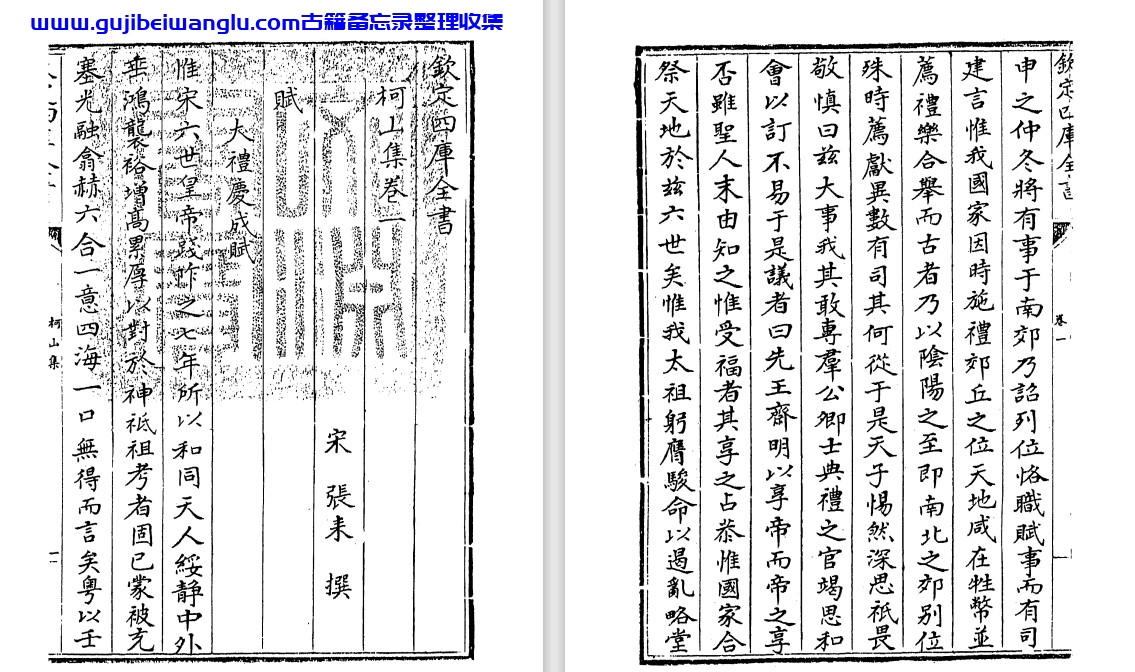 www.gujibeiwanglu.com古籍备忘录整理收集
欽定四庫全書
柯山集卷一
宋 張耒 撰
賦
大禮慶成賦
惟宋六世皇帝踐阼之七年所以和同天人綏靜中外
垂鴻襲裕增髙累厚以對於神祗祖考者固已蒙被充
塞光融翕赫六合一意四海一口無得而言矣粤以壬
柯山集
一
欽定四庫全書
卷一
申之仲冬將有事于南郊乃詔列位恪職賦事而有司
建言惟我國家因時施禮郊丘之位天地咸在牲幣並
薦禮樂合舉而古者乃以陰陽之至即南北之郊别位
殊時薦獻異數有司其何從于是天子惕然深思祇畏
敬慎曰兹大事我其敢專羣公卿士典禮之官竭思和
會以訂不易于是議者曰先王齋明以享帝而帝之享
否雖聖人末由知之惟受福者其享之占恭惟國家合
祭天地於兹六世矣惟我太祖躬膺駿命以遏亂略堂